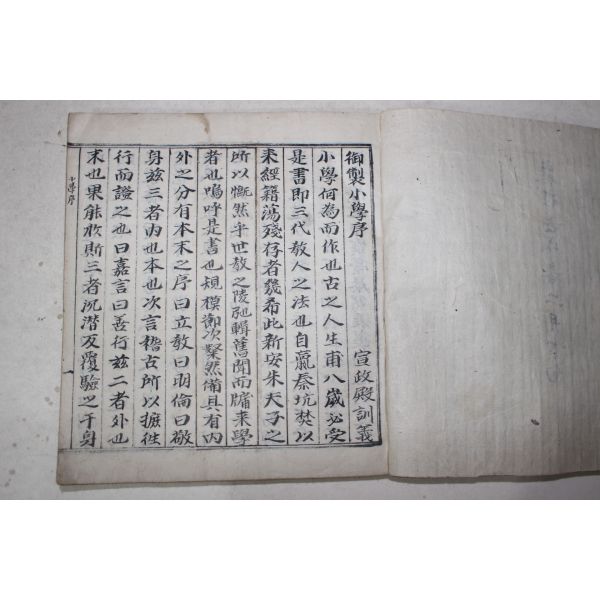 御製小學序 宣政殿訓義
小學何為而作也古之人生甫八歲必受
是書即三代敎人之法也自嬴秦坑焚以
來經籍蕩殘存者幾希此新安朱夫子之
所以慨然乎世敎之陵弛輯舊聞而牖来學
者也嗚呼是書也規模節次粲然備具有內
外之分有本末之序曰立敎曰明倫曰敬
身兹三者內也本也次言稽古所以摭徃
行而證之也曰嘉言曰善行兹二者外也
末也果能收斯三者沉潜反覆驗之于身
小學序
一